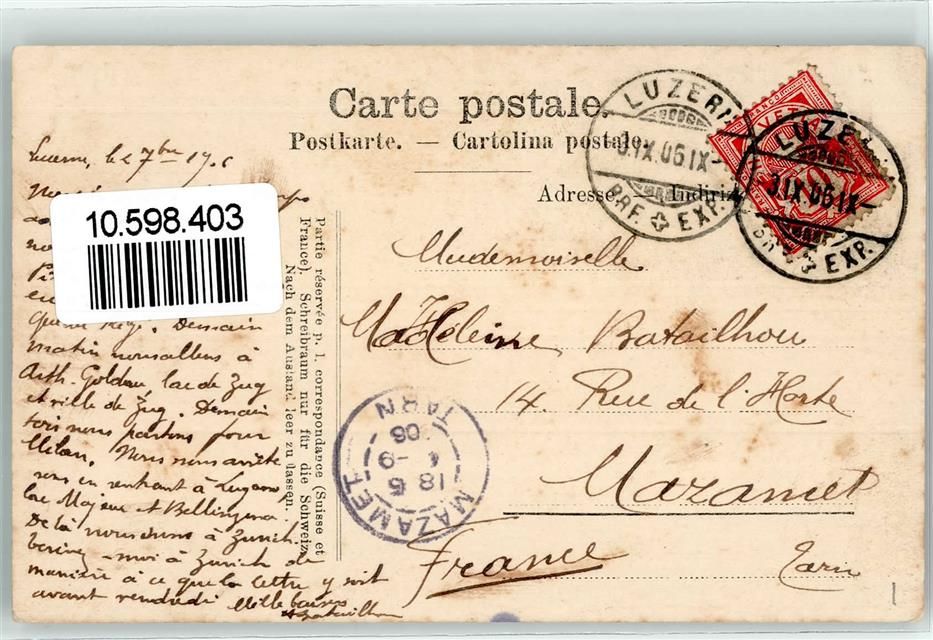 Carte postale.
Postkarte. — Cartolina postale.
Adresse. — Indiriz
LUZERN
IX.06.IX
BRF. EXP.
LUZE
31.IX.06.IX
EXP.
Lucerne, le 7bre 19
10.598.403
en
Demain
matin nous allons à
Arth. Goldau lac de Zug
et ville de Zug. Demain
soir nous partons pour
Milan. Nous nous arrête
rons en rentrant à Lugano
lac Majeur et Bellinzona.
De là nous irons à Zurich.
moi à Zurich de
manière à ce que la lettre y soit
avant vendredi Mille baisers
Batailhou
Partie réservée p. l. correspondance (Suisse et
France). Schreibraum nur für die Schweiz.
Nach dem Ausland leer zu lassen.
Mademoiselle
Madeleine Batailhou
14 Rue de l'Horte
Mazamet
France Tarn
MAZAMET
18 5
-9
06
TARN
1